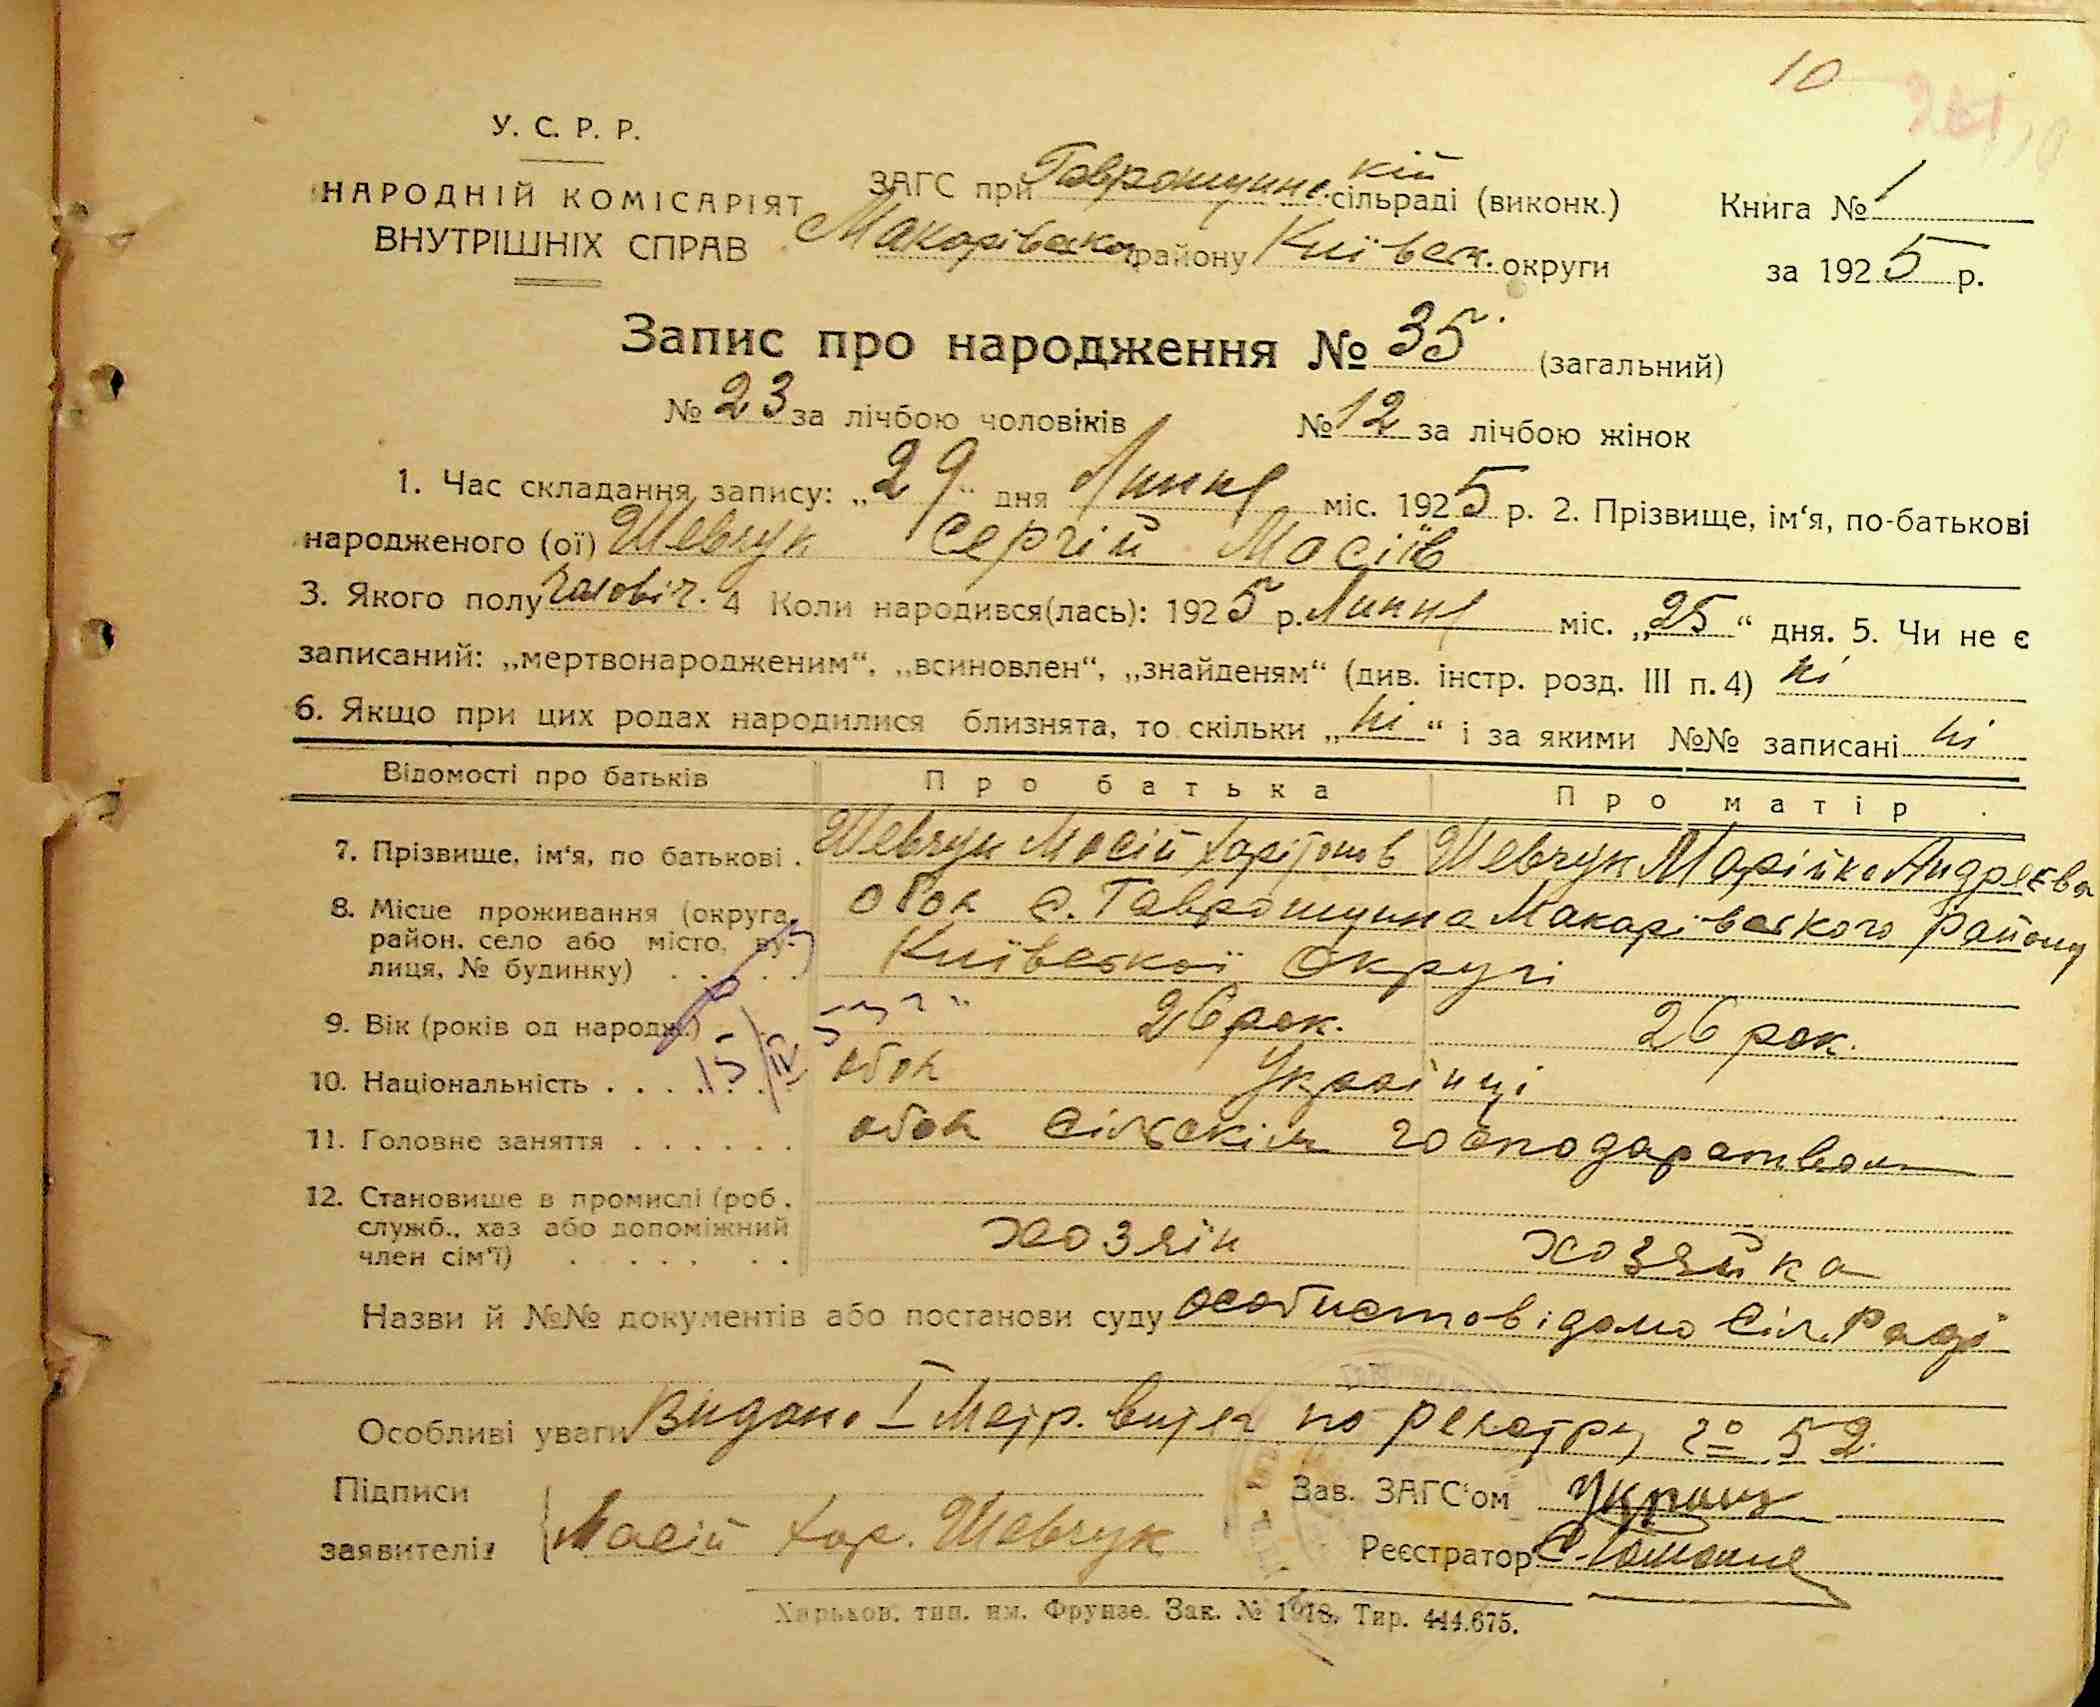 10
У. С. Р. Р.
НАРОДНІЙ КОМІСАРІЯТ
ВНУТРІШНІХ СПРАВ
ЗАГС при Гаврошинс.кій сільраді (виконк.)
Макарівського району Київськ. округи
Книга № 1
за 1925 р.
Запис про народження № 35 (загальний)
№ 23 за лічбою чоловіків № 12 за лічбою жінок
1. Час складання запису: „29“ дня Липня міс. 1925 р. 2. Прізвище, ім‘я, по-батькові
народженого (ої) Шевчук Сергій Мосіїв
3. Якого полу чоловіч. 4 Коли народився(лась): 1925 р. Липня міс. „25“ дня. 5. Чи не є
записаний: „мертвонародженим“, „всиновлен“, „знайденям“ (див. інстр. розд. III п. 4) ні
6. Якщо при цих родах народилися близнята, то скільки „ні“ і за якими №№ записані ні
Відомості про батьків Про батька Про матір
7. Прізвище, ім‘я, по батькові . Шевчук Мосій Харітонов Шевчук Марійка Андреєва
8. Місце проживання (округа, район, село або місто, вулиця, № будинку) . . . . . обох с. Гаврошина Макарівського району
Київської округі
9. Вік (років од народж.) 26 рок. 26 рок.
10. Національність . . . . . . обох Українці
11. Головне заняття . . . . . . обох сільскім господарством
12. Становище в промислі (роб.
служб., хаз або допоміжний
член сім‘ї) . . . . . . . хозяін хозяйка
Назви й №№ документів або постанови суду особисто відомо Сіл. Раді
Особливі уваги Видано I Метр. витяг по реєстру № 52
Підписи
заявителів Мосій Хар. Шевчук
Зав. ЗАГС‘ом
Реєстратор
Харьков, тип. им. Фрунзе. Зак. № 1918. Тир. 444.675.